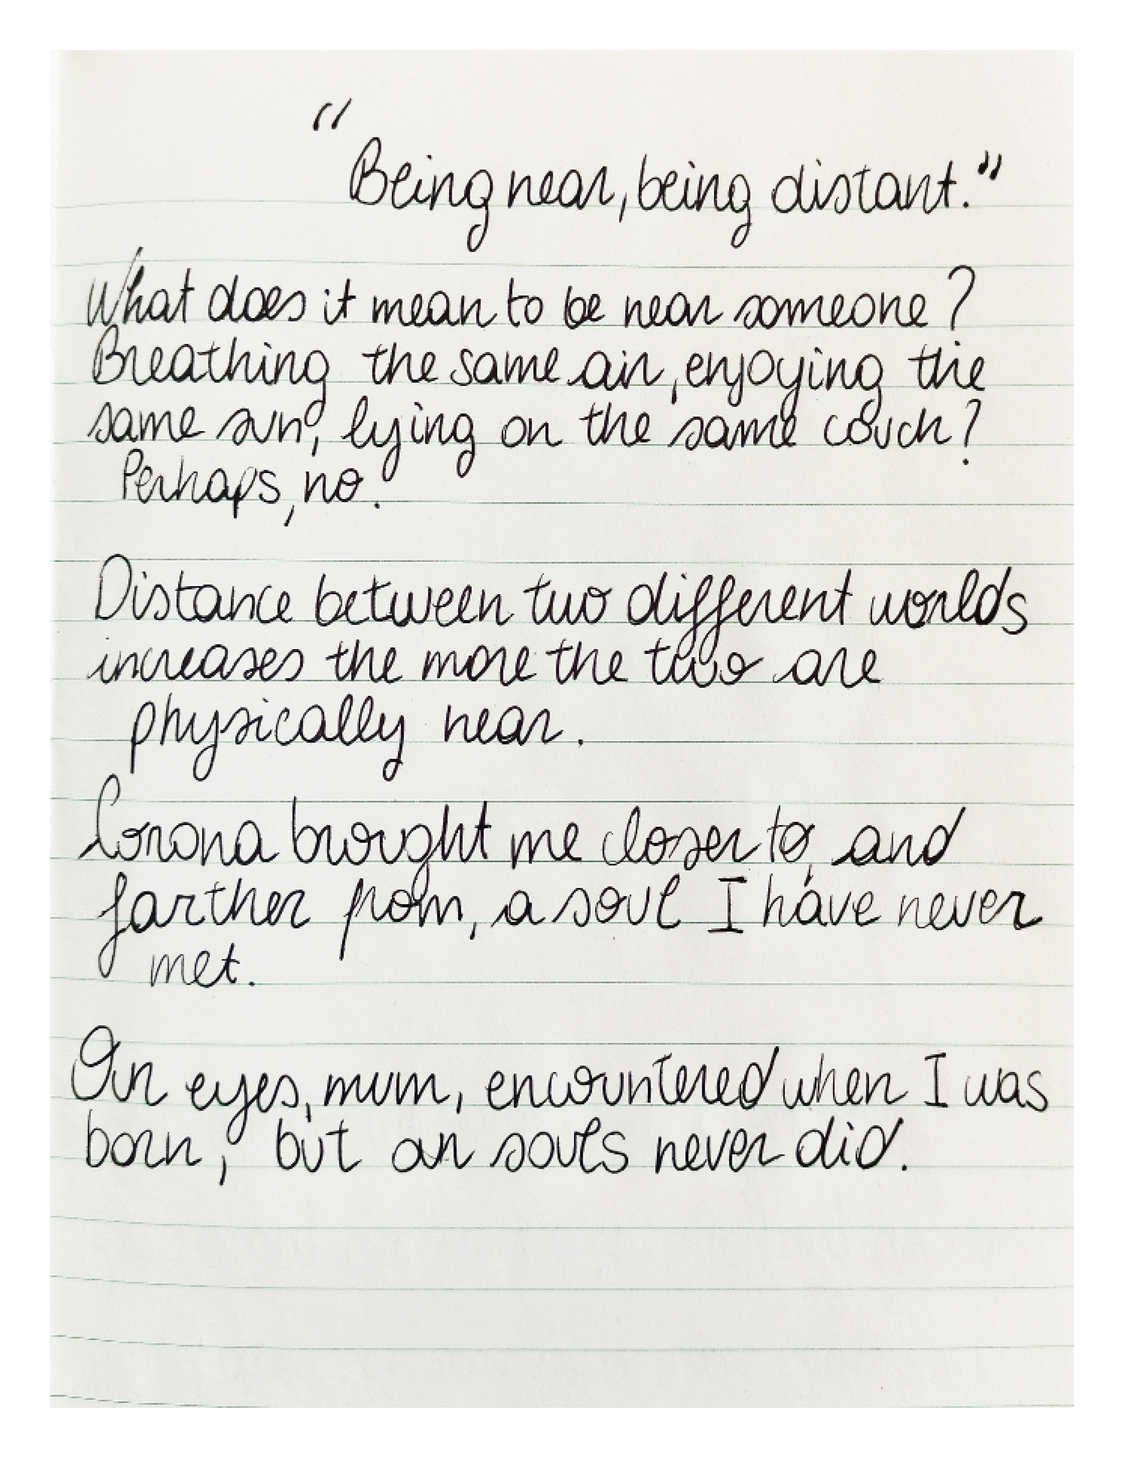 "Being near, being distant."
What does it mean to be near someone?
Breathing the same air, enjoying the
same sun, lying on the same couch?
Perhaps, no.
Distance between two different worlds
increases the more the two are
physically near.
Corona brought me closer to, and
farther from, a soul I have never
met.
Our eyes, mum, encountered when I was
born, but our souls never did.